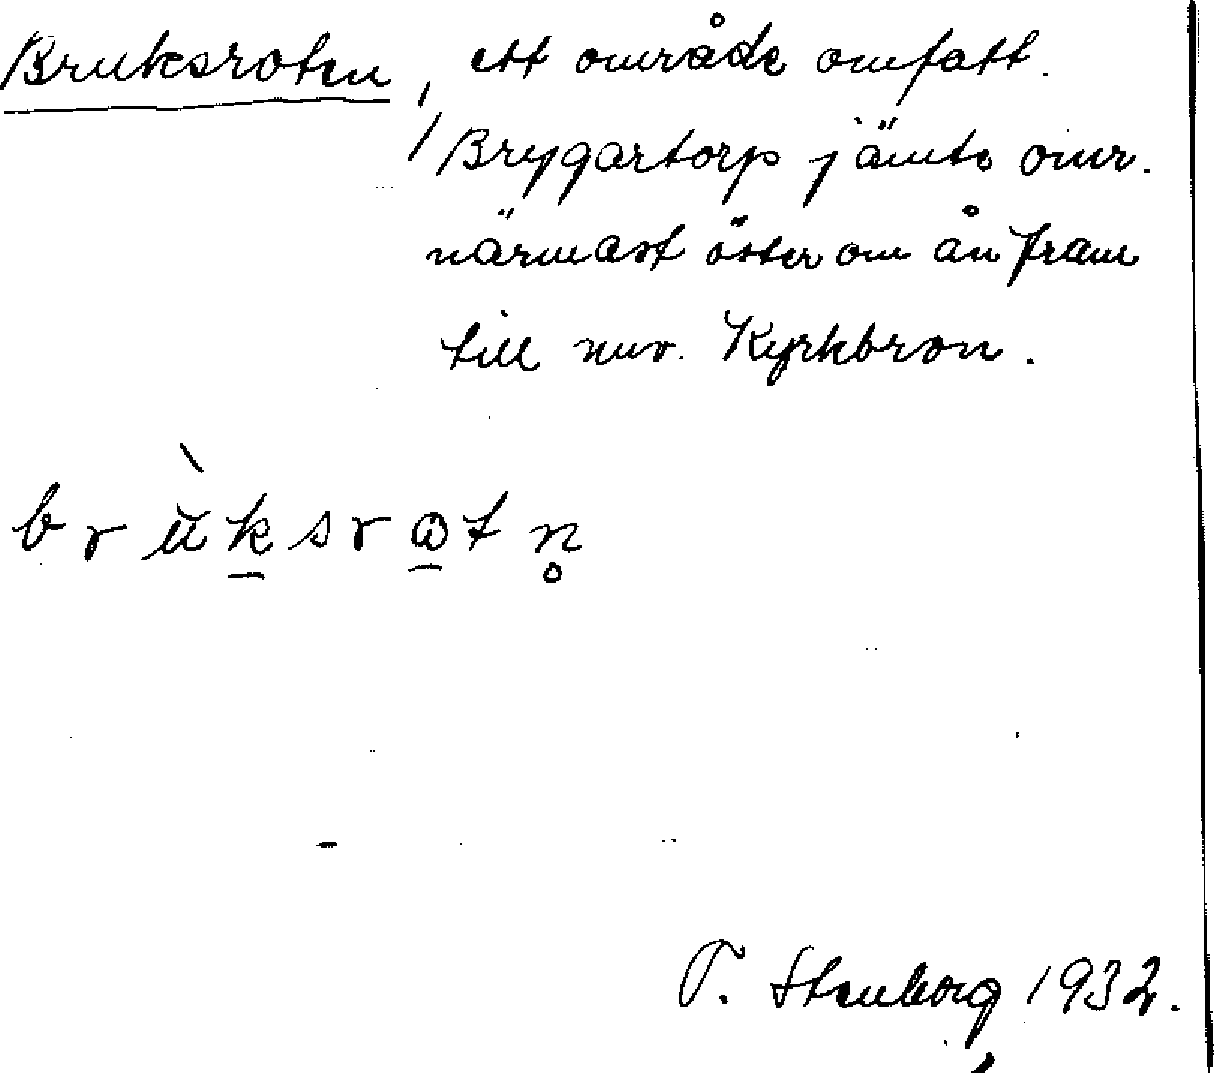 Bruksroten, ett område omfatt.
Brygartorp jämte omr.
närmast öster om ån fram
till nuv. Kyrkbron.
brùksrⱺtn̥
T. Stenborg 1932.